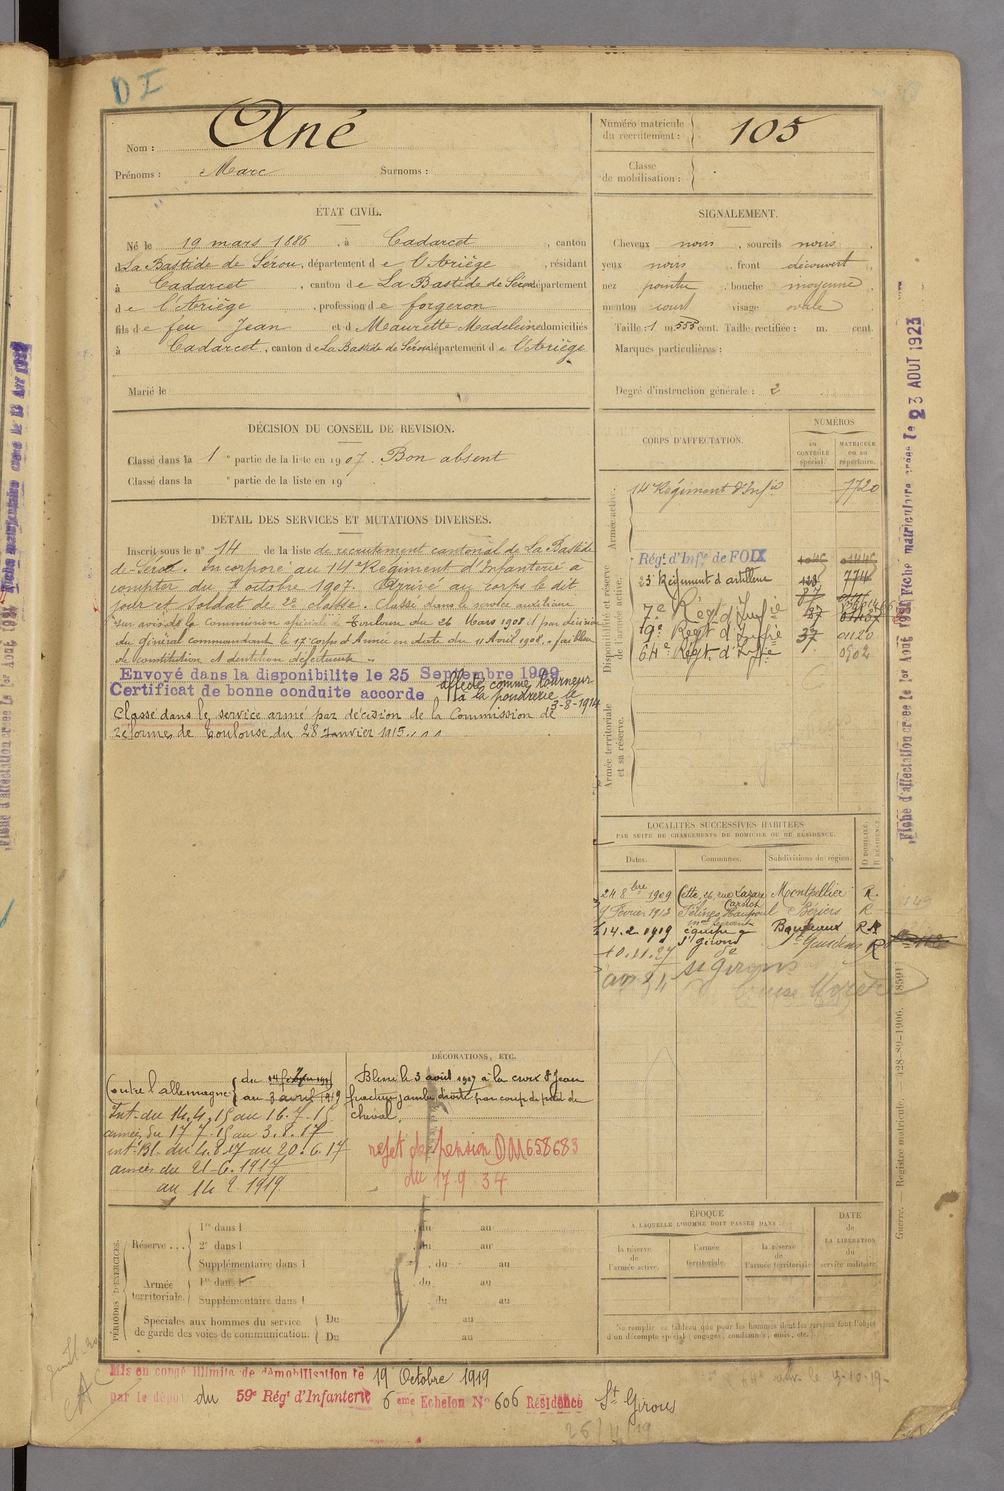 DI
Nom : Ané
Prénoms : Marc Surnoms :
Numéro matricule du recrutement : 105
Classe de mobilisation :
ÉTAT CIVIL.
Né le 19 mars 1886, à Cadarcet, canton
d La Bastide de Sérou, département de l'Ariège, résidant
à Cadarcet, canton de La Bastide de Sérou département
de l'Ariège, profession de forgeron
fils de feu Jean et de Maurette Madeleine domiciliés
à Cadarcet, canton de La Bastide de Sérou département de l'Ariège
Marié le
SIGNALEMENT.
Cheveux noirs, sourcils noirs
yeux noirs, front découvert,
nez pointu, bouche moyenne,
menton court visage ovale
Taille : 1 m. 555 cent. Taille rectifiée : m. cent.
Marques particulières :
Degré d'instruction générale : 2
DÉCISION DU CONSEIL DE REVISION.
Classé dans la 1 e partie de la liste en 1907. Bon absent
Classé dans la e partie de la liste en 19
CORPS D'AFFECTATION.
NUMÉROS
AU CONTRÔLE spécial.
MATRICULE OU AU répertoire.
Armée active.
14 Régiment d'Infie 7720
Disponibilité et réserve de l'armée active.
Régt d'Infie de FOIX
23e Régiment d'artillerie
7e Regt d'Infie
19e Regt d'Infie 37 01120
64e Régt d'Infie 0902
Armée territoriale et sa réserve.
DÉTAIL DES SERVICES ET MUTATIONS DIVERSES.
Inscrit sous le n° 14 de la liste de recrutement cantonal de La Bastide
de-Sérou. Incorporé au 14e Régiment d'Infanterie à
compter du 7 octobre 1907. Arrivé au corps le dit
jour et soldat de 2e classe. Classé dans le service auxiliaire
sur avis de la Commission spéciale de Toulouse du 26 Mars 1908 et par décision
du Général commandant le 17e corps d'Armée en date du 11 Avril 1908. faiblesse
de constitution et dentition défectueuse.
Envoyé dans la disponibilite le 25 Septembre 1909
Certificat de bonne conduite accorde
affecté comme tourneur
à la poudrerie le
3-8-1914
Classé dans le service armé par décision de la Commission de
reformes de Toulouse du 28 Janvier 1915
LOCALITÉS SUCCESSIVES HABITÉES
PAR SUITE DE CHANGEMENTS DE DOMICILE OU DE RÉSIDENCE.
Dates. Communes. Subdivisions de région. D DOMICILE R RÉSIDENCE
24 8bre 1909 Cette, 26, rue Lazare Carnot Montpellier R.
9 Février 1913 Béziers R
14.2.1919 St Girons R
10.11.27 de R
St Girons
DÉCORATIONS, ETC.
Contre l'allemagne { du
au 3 avril 1919
Int. du 14.4.15 au 16.7.15
armées du 17 7 15 au 3.8.17
int. Bl. du 4.8.17 au 20.6.17
armées du 21-6.1917
au 14 2 1919
Blessé le 3 août 1917 à la croix St Jean
fracture jambe droite par coup de pied de
cheval.
rejet de pension DM 658683
du 17.9.34
PÉRIODES D'EXERCICES.
Réserve... 1re dans l , du au
2e dans l , du au
Supplémentaire dans l , du au
Armée territoriale. 1re dans l , du au
Supplémentaire dans l , du au
Spéciales aux hommes du service de garde des voies de communication. Du au
Du au
ÉPOQUE
À LAQUELLE L'HOMME DOIT PASSER DANS :
la réserve de l'armée active.
l'armée territoriale.
la réserve de l'armée territoriale.
DATE de LA LIBÉRATION du service militaire.
Ne remplir ce tableau que pour les hommes dont les services font l'objet
d'un décompte spécial (engagés, condamnés, omis, etc.).
Mis en congé illimité de démobilisation le 19 Octobre 1919
par le dépôt du 59e Régt d'Infanterie 6 eme Echelon N° 606 Résidence St Girons
26/4/19
Fiche d'affectation créée le 1er Août 1920 Fiche matriculaire créée le 23 AOUT 1923
Guerre. Registre matricule. 128-89-1906. [8591]